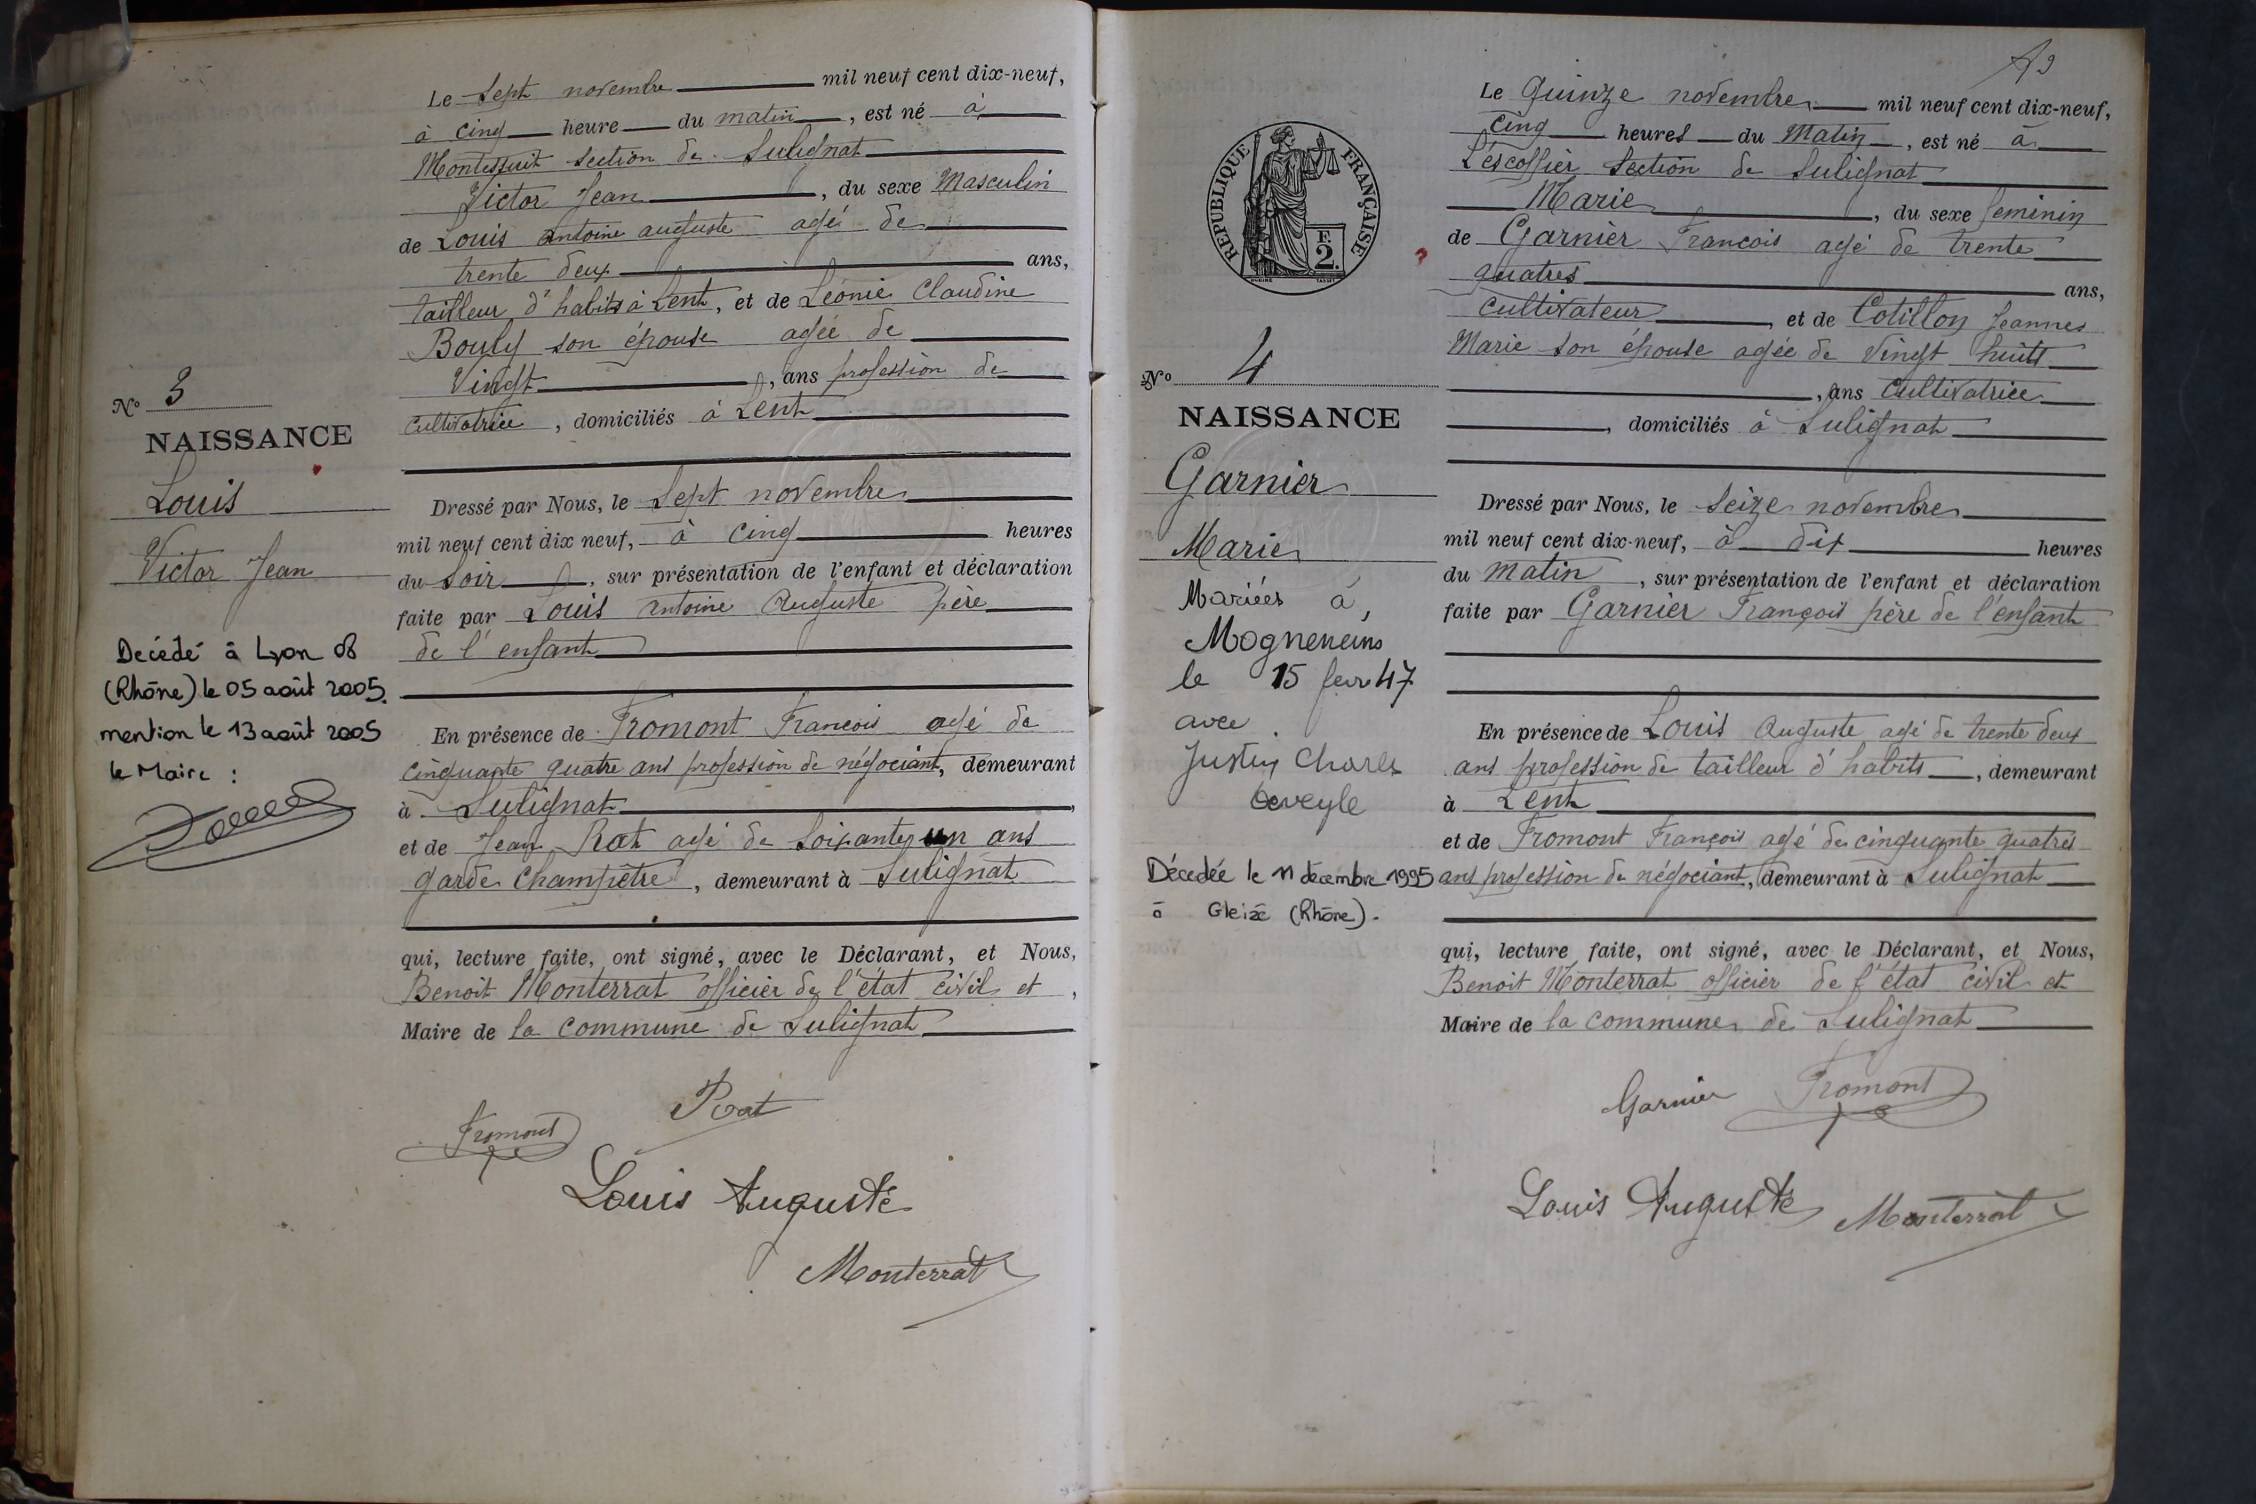 Le Sept novembre mil neuf cent dix-neuf,
à cinq heure du matin, est né à
Montessuit section de Sulignat
Victor Jean, du sexe Masculin
de Louis antoine auguste agé de
trente deux ans,
tailleur d'habits à Lent, et de Léonie Claudine
Bouly son épouse agée de
Vingt, ans profession de
cultivatrice, domiciliés à Lent
No 3
NAISSANCE
Louis
Victor Jean
Décédé à Lyon 08
(Rhône) le 05 août 2005.
mention le 13 août 2005
le Maire :
Dressé par Nous, le Sept novembre
mil neuf cent dix neuf, à cinq heures
du Soir, sur présentation de l'enfant et déclaration
faite par Louis antoine Auguste père
de l'enfant
En présence de Fromont Francois agé de
cinquante quatre ans profession de négociant, demeurant
à Sulignat,
et de Jean Rat agé de soixante un ans
garde Champêtre, demeurant à Sulignat
qui, lecture faite, ont signé, avec le Déclarant, et Nous,
Benoit Monterrat officier de l'état civil et,
Maire de la commune de Sulignat
Rat
Fromont
Louis Auguste
Monterrat
Le Quinze novembre mil neuf cent dix-neuf,
cinq heures du Matin, est né à
L'éscoffier Section de Sulignat
Marie, du sexe feminin
de Garnier Francois agé de trente
quatres ans,
cultivateur, et de Cotillon Jeannes
Marie son épouse agée de Vingt huits
, ans Cultivatrice
, domiciliés à Sulignat
RÉPUBLIQUE FRANÇAISE
F.
2.
No 4
NAISSANCE
Garnier
Marie
Mariées à,
Mogneneins
le 15 fevr 47
avec
Justin Charles
Déceyle
Décédée le 11 décembre 1995
à Gleizé (Rhône).
Dressé par Nous, le Seize novembre
mil neuf cent dix-neuf, à dix heures
du matin, sur présentation de l'enfant et déclaration
faite par Garnier François père de l'enfant
En présence de Louis Auguste agé de trente deux
ans profession de tailleur d'habits, demeurant
à Lent
et de Fromont François agé de cinquante quatres
ans profession de négociant, demeurant à Sulignat
qui, lecture faite, ont signé, avec le Déclarant, et Nous,
Benoit Monterrat officier de l'état civil et
Maire de la commune de Sulignat
Garnier Fromont
Louis Auguste Monterrat